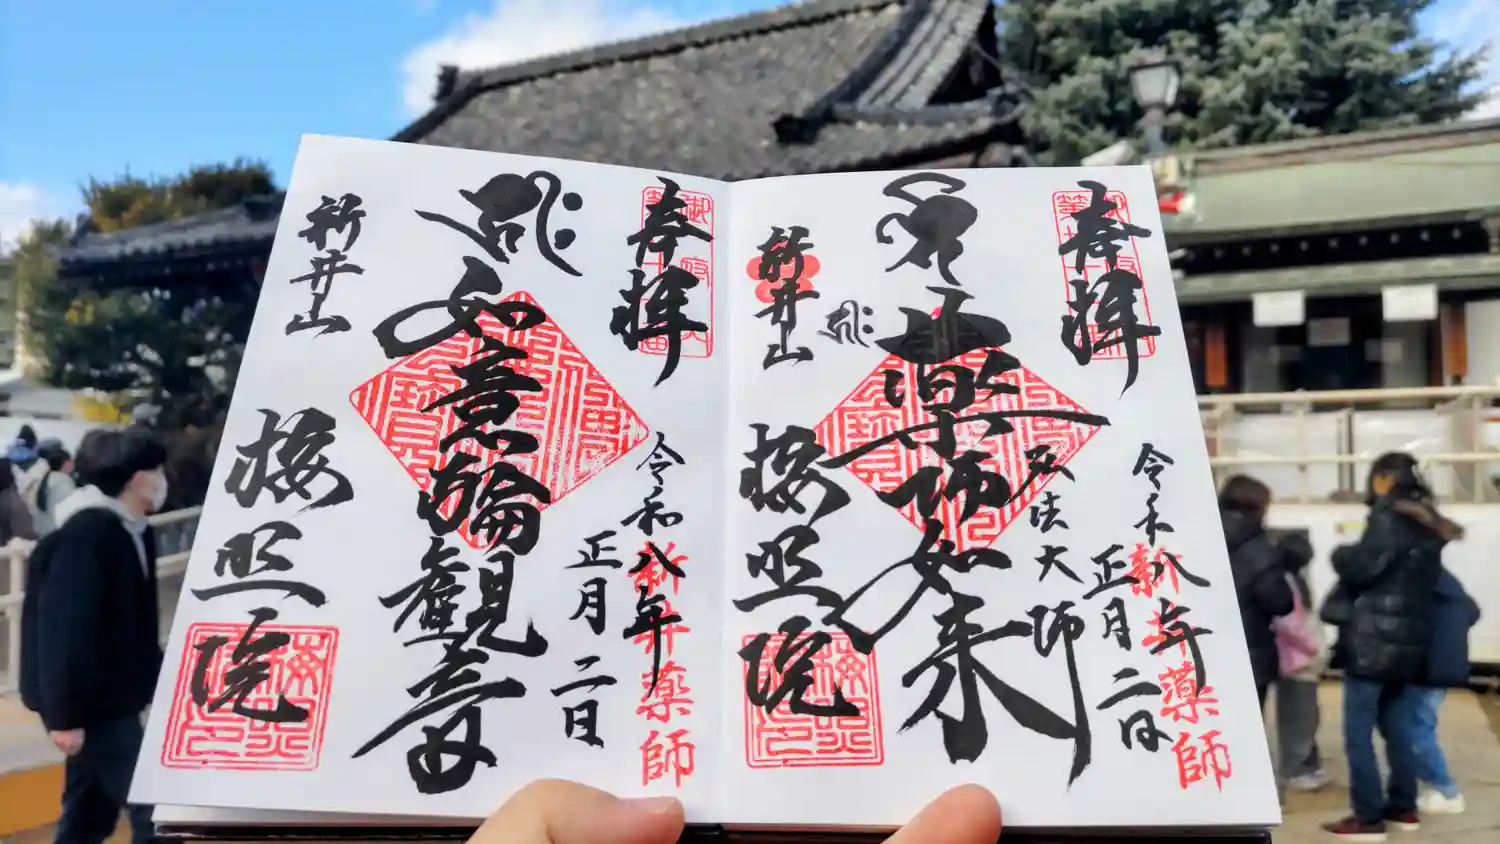 奉拝
弘法大師
薬師如来
新井山
梅照院
令和八年
正月二日
新井薬師
奉拝
令和八年
正月二日
新井薬師
如意輪観音
新井山
梅照院